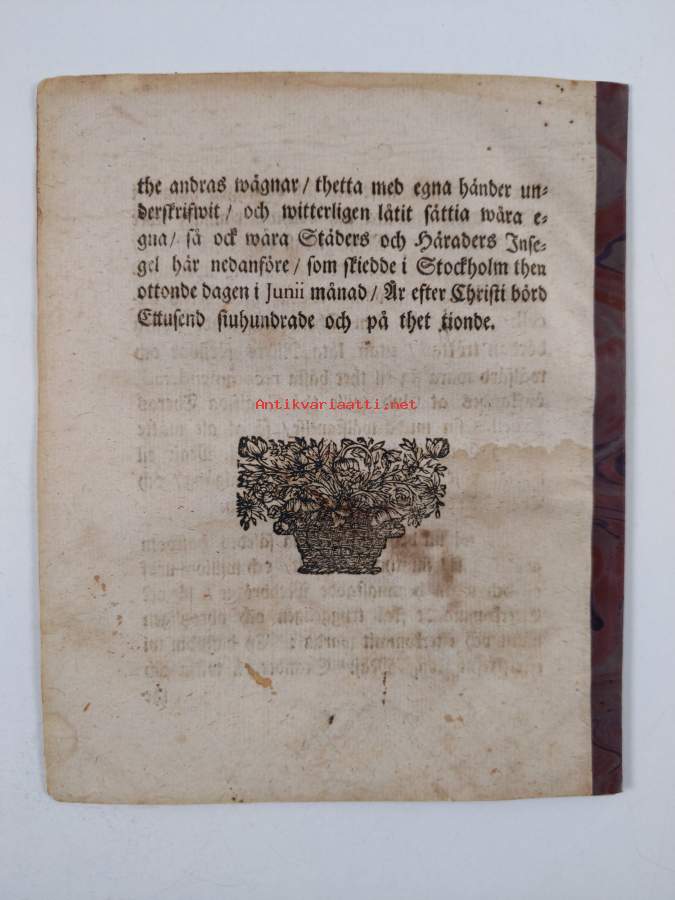 the andras wägnar / thetta med egna händer un-
derskrifwit / och witterligen låtit sättia wåra e-
gna / så ock wåra Städers och Häraders Inse-
gel här nedanföre / som skiedde i Stockholm then
ottonde dagen i Junii månad / År efter Christi börd
Ettusend siuhundrade och på thet tionde.
Antikvariaatti.net